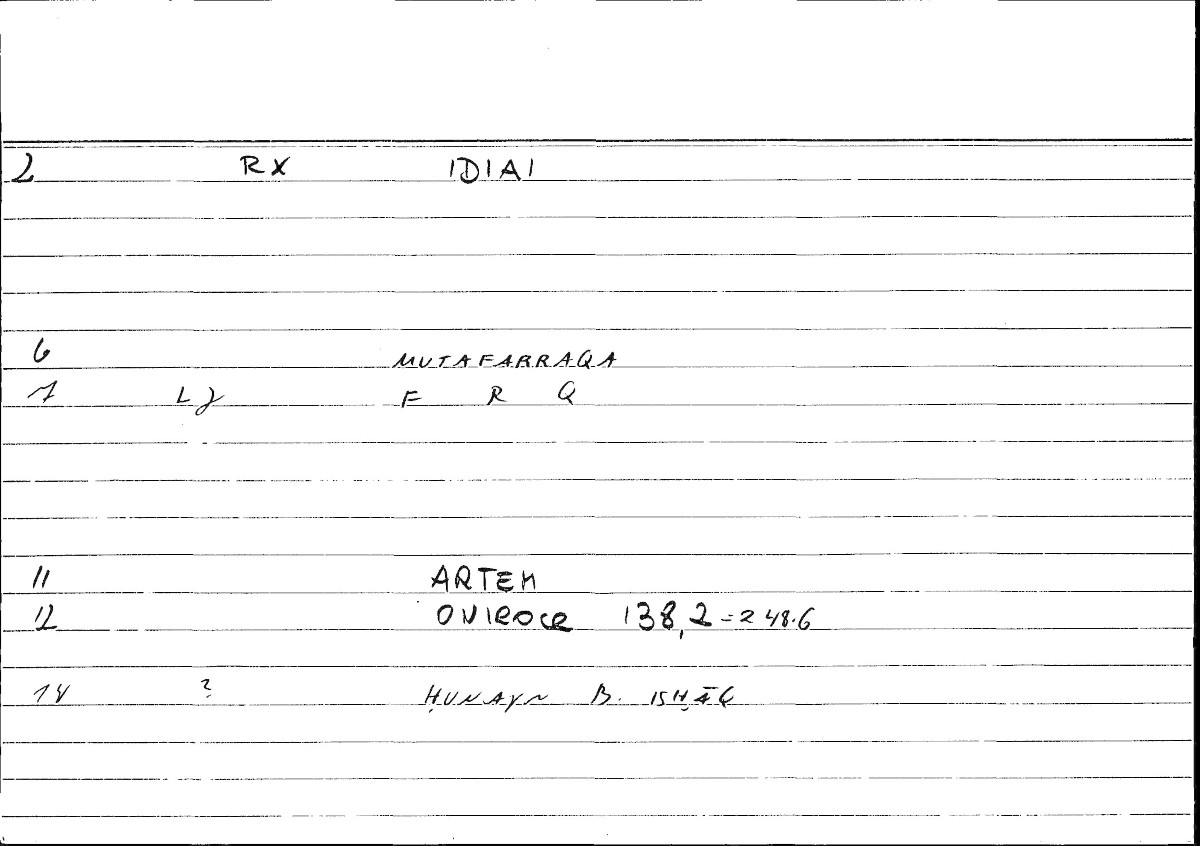 2 RX IDIAI
6 MUTAFARRAQA
7 LJ F R Q
11 ARTEM
12 ONIROCR 138,2 = 248.6
14 ? ḤUNAYN B. ISḤĀQ